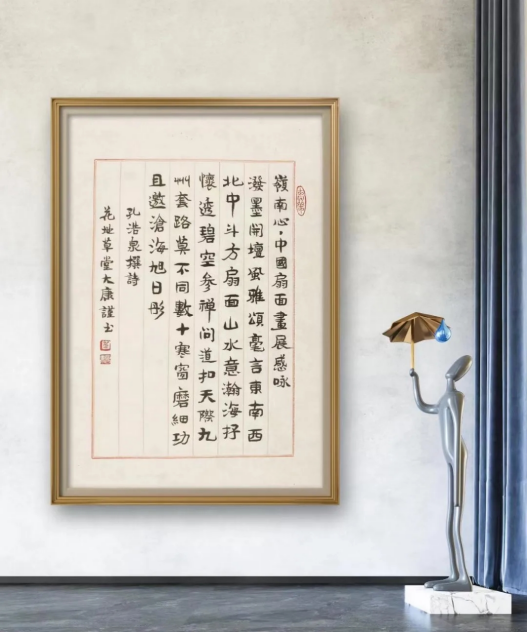 嶺南心·中國扇面畫展感咏
潑墨開壇風雅頌毫言東南西
北中斗方扇面山水意瀚海抒
懷透碧空參禪问道扣天際九
州套路莫不同數十寒窗磨細功
且邀滄海旭日彤
孔浩泉撰詩
花地草堂大康謹书